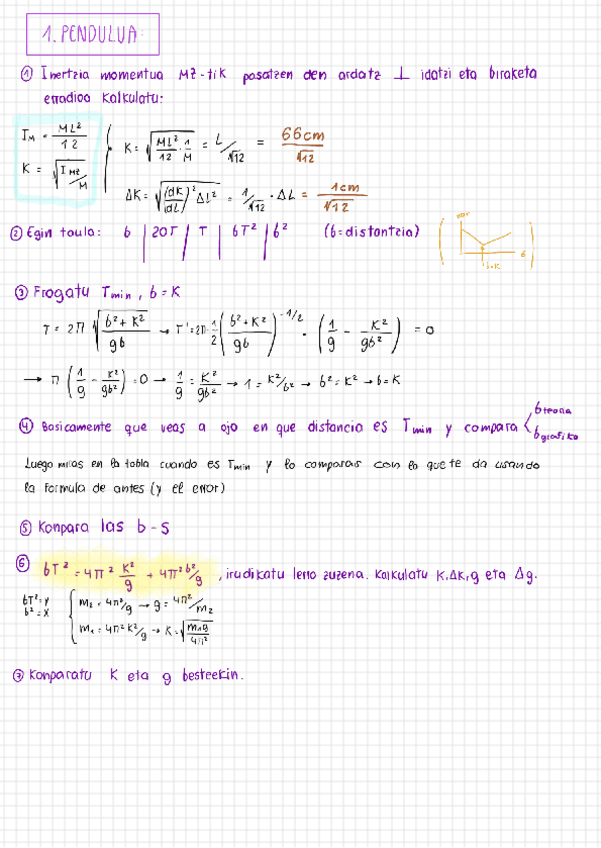 1. PENDULUA:
① Inertzia momentua MZ-tik pasatzen den ardatz ⊥ idatzi eta biraketa
erradioa kalkulatu:
I_M = ML²/12
K = √(I_MZ/M)
K = √(ML²/12 · 1/M) = L/√12 = 66cm/√12
ΔK = √((dK/dL)² ΔL²) = 1/√12 · ΔL = 1cm/√12
② Egin taula: b | 20T | T | bT² | b² (b=distantzia)
③ Frogatu Tmin, b=K
T = 2π √((b²+K²)/gb) → T' = 2π · 1/2 ((b²+K²)/gb)^(-1/2) · (1/g - K²/gb²) = 0
→ π (1/g - K²/gb²) = 0 → 1/g = K²/gb² → 1 = K²/b² → b² = K² → b=K
④ Basicamente que veas a ojo en que distancia es Tmin y compara < b teoria
b grafiko
Luego miras en la tabla cuando es Tmin y lo comparas con lo que te da usando
la formula de antes (y el error)
⑤ Konpara las b-s
⑥ bT² = 4π² K²/g + 4π²b²/g , irudikatu lerro zuzena. Kalkulatu K, ΔK, g eta Δg.
bT²=Y
b²=X
m₂ = 4π²/g → g = 4π²/m₂
m₁ = 4π²K²/g → K = √(m₁g/4π²)
⑦ Konparatu K eta g besteekin.